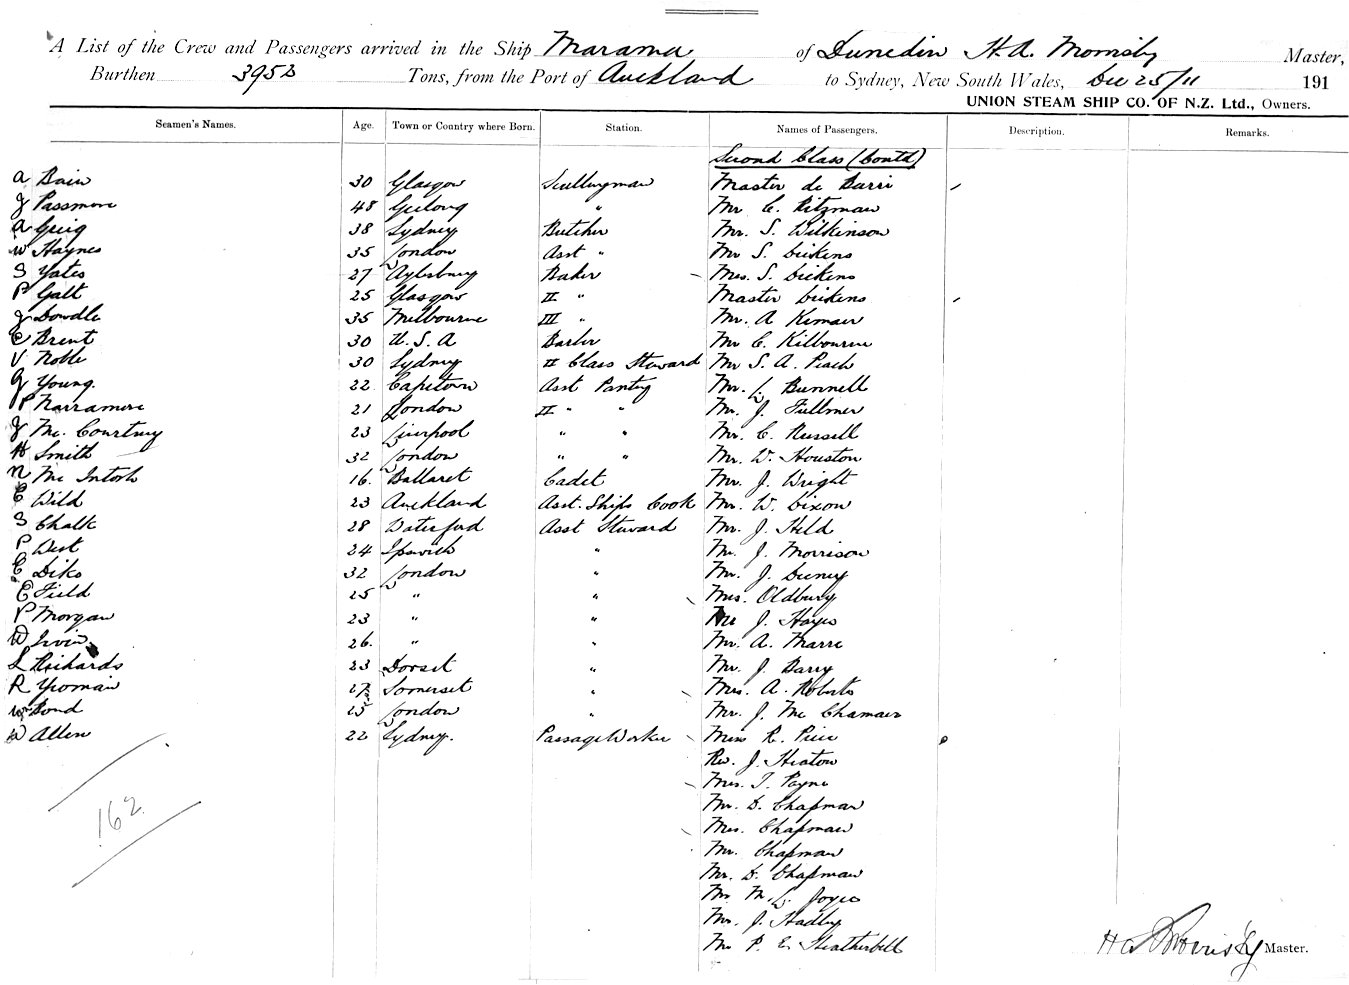 A List of the Crew and Passengers arrived in the Ship Marama of Dunedin H.A. Morrisby Master,
Burthen Tons, from the Port of Auckland to Sydney, New South Wales, Dec 25/11 191
UNION STEAM SHIP CO. OF N.Z. Ltd., Owners.
Seamen's Names. Age. Town or Country where Born. Station. Names of Passengers. Description. Remarks.
Second Class (Contd)
A Bain 30 Glasgow Sculleryman Master de Barri
J Passmore 48 Geelong " Mr C. Ritzman
A Greig 38 Sydney Butcher Mr. S. Wilkinson
W Haynes 35 London Asst " Mr S. Dickens
S Yates 27 Aylesbury Baker Mrs. S. Dickens
P Galt 25 Glasgow II " Master Dickens
J Dowdle 35 Melbourne III " Mr. A
C Brent 30 U.S.A Barber Mr C. Kilbourne
V Noble 30 Sydney II Class Steward Mr S. A. Peach
G Young. 22 Capetown Asst Pantry Mr. L. Bunnell
P Narramore 21 London II " " Mr. J. Fullmer
J Mc. Courtney 23 Liverpool " " Mr. C. Russell
H Smith 32 London " " Mr. W. Houston
N Mc Intosh 16. Ballarat Cadet Mr. J. Wright
C Wild 23 Auckland Asst. Ships Cook Mr. W. Dixon
S Chalk 28 Waterford Asst Steward Mr. J. Held
P West 24 Ipswich " Mr. J. Morrison
C Diks 32 London " Mr. J.
E Field 25 " " Mrs. Oldbury
P Morgan 23 " " Mr J. Hayes
W Irvin 26. " " Mr. A. Marre
L Richards 23 Dorset " Mr. J. Barry
R Yeoman 27 Somerset " Mrs. A. Roberts
Wm Bond 25 London " Mr. J. Mc
W Allen 22 Sydney. Passage Worker Miss R. Price
Rev. J. Heaton
Mrs. T. Payne
Mr. D. Chapman
Mrs. Chapman
Mr. Chapman
Mr. D. Chapman
162.
Mr M. L. Joyce
Mr. J. Hadley
Mr P. E. Heatherbell
H A Morrisby Master.